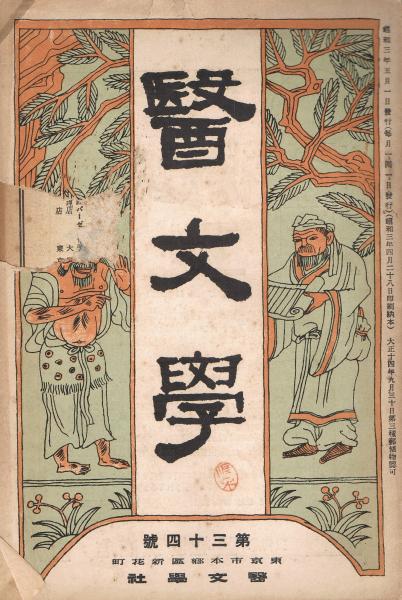 昭和三年五月一日發行(每月一回一日發行)(昭和三年四月二十八日印刷納本) 大正十四年九月三十日第三種郵便物認可
醫文學
號四十三第
町花新區鄉本市京東
社學文醫